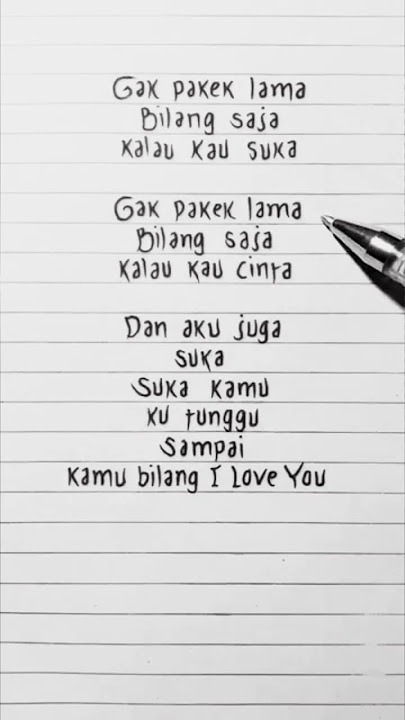 Gak pakek lama
Bilang saja
Kalau kau suka
Gak pakek lama
Bilang saja
Kalau kau cinta
Dan aku juga
suka
Suka kamu
ku tunggu
Sampai
kamu bilang I Love You